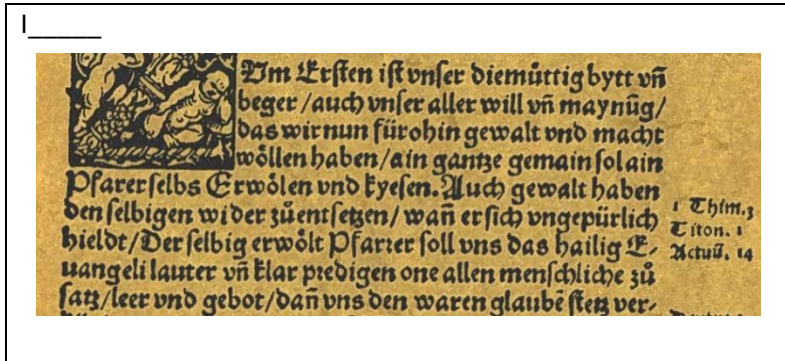 I_____
Um Ersten ist vnser diemüttig bytt vñ
beger / auch vnser aller will vñ maynũg /
das wir nun fürohin gewalt vnd macht
wöllen haben / ain gantze gemain sol ain
Pfarer selbs Erwölen vnd kyesen. Auch gewalt haben
den selbigen wider zůentsetzen / wañ er sich vngepürlich
hieldt / Der selbig erwölt Pfarrer soll vns das hailig E-
uangeli lauter vñ klar predigen one allen menschliche zů
satz / leer vnd gebot / dañ vns den waren glaubẽ stetz ver-
1 Thim. 3
Titon. 1
Actuũ. 14